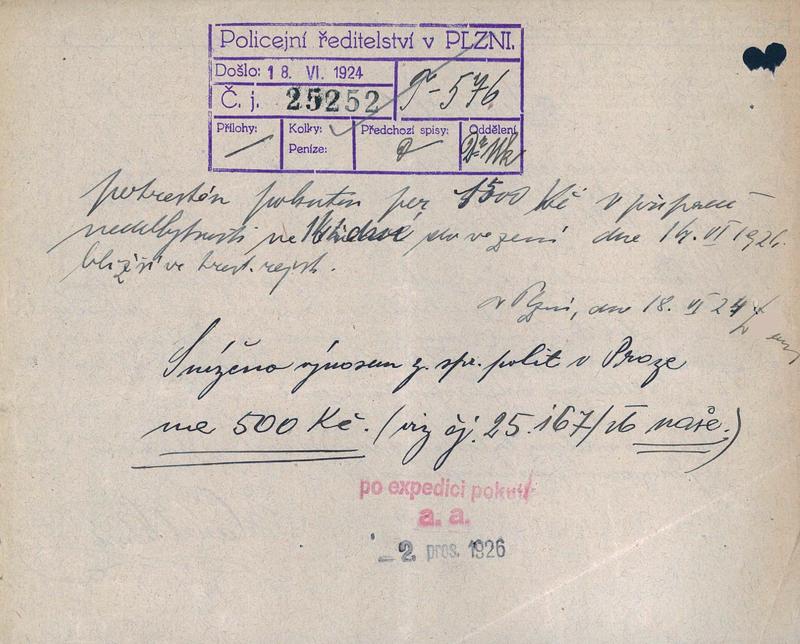 Policejní ředitelství v PLZNI.
Došlo: 18. VI. 1924
Č. j. 25252
Přílohy:
Kolky:
Peníze:
Předchozí spisy:
Oddělení
potrestán pokutou per 1500 Kč v případě
nedobytnosti na vězení dne VI 1926.
bližší ve trest. rejstř.
v Plzni, dne 18. VI 24
Sníženo výnosem z. spr. polit v Praze
na 500 Kč. (viz čj. 25.167/26 naše.)
po expedici pokut
a. a.
- 2. pros. 1926